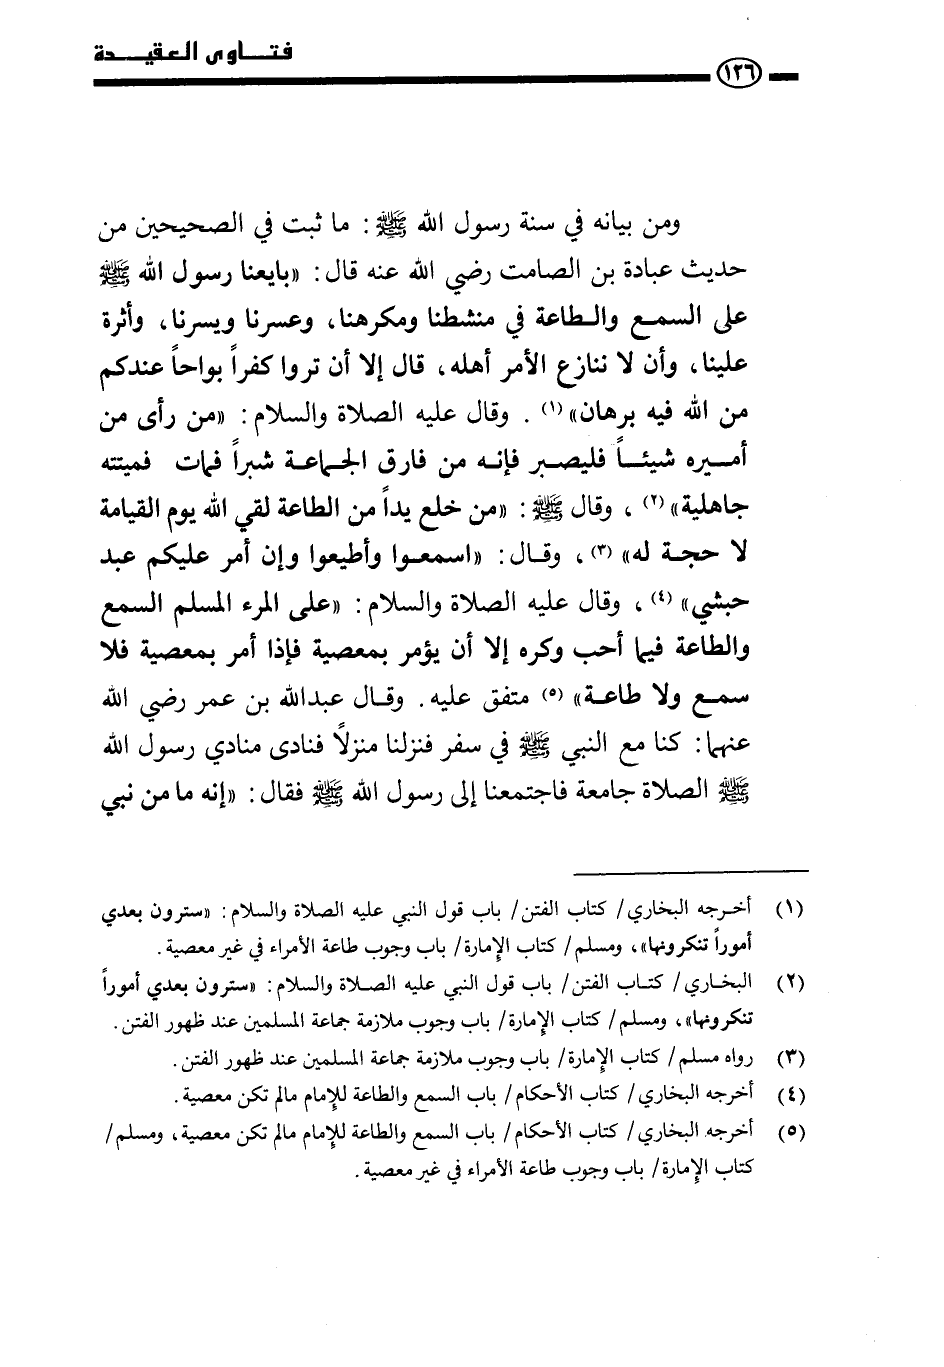 فتاوى العقيدة
١٢٦
ومن بيانه في سنة رسول الله ﷺ: ما ثبت في الصحيحين من
حديث عبادة بن الصامت رضي الله عنه قال: «بايعنا رسول الله ﷺ
على السمع والطاعة في منشطنا ومكرهنا، وعسرنا ويسرنا، وأثرة
علينا، وأن لا ننازع الأمر أهله، قال إلا أن تروا كفراً بواحاً عندكم
من الله فيه برهان» (١). وقال عليه الصلاة والسلام: «من رأى من
أميره شيئاً فليصبر فإنه من فارق الجماعة شبراً فمات فميتته
جاهلية» (٢)، وقال ﷺ: «من خلع يداً من الطاعة لقي الله يوم القيامة
لا حجة له» (٣)، وقال: «اسمعوا وأطيعوا وإن أمر عليكم عبد
حبشي» (٤)، وقال عليه الصلاة والسلام: «على المرء المسلم السمع
والطاعة فيما أحب وكره إلا أن يؤمر بمعصية فإذا أمر بمعصية فلا
سمع ولا طاعة» (٥) متفق عليه. وقال عبدالله بن عمر رضي الله
عنهما: كنا مع النبي ﷺ في سفر فنزلنا منزلاً فنادى منادي رسول الله
ﷺ الصلاة جامعة فاجتمعنا إلى رسول الله ﷺ فقال: «إنه ما من نبي
(١) أخرجه البخاري/ كتاب الفتن/ باب قول النبي عليه الصلاة والسلام: «سترون بعدي
أموراً تنكرونها»، ومسلم/ كتاب الإمارة/ باب وجوب طاعة الأمراء في غير معصية.
(٢) البخاري/ كتاب الفتن/ باب قول النبي عليه الصلاة والسلام: «سترون بعدي أموراً
تنكرونها»، ومسلم/ كتاب الإمارة/ باب وجوب ملازمة جماعة المسلمين عند ظهور الفتن.
(٣) رواه مسلم/ كتاب الإمارة/ باب وجوب ملازمة جماعة المسلمين عند ظهور الفتن.
(٤) أخرجه البخاري/ كتاب الأحكام/ باب السمع والطاعة للإمام مالم تكن معصية.
(٥) أخرجه البخاري/ كتاب الأحكام/ باب السمع والطاعة للإمام مالم تكن معصية، ومسلم/
كتاب الإمارة/ باب وجوب طاعة الأمراء في غير معصية.